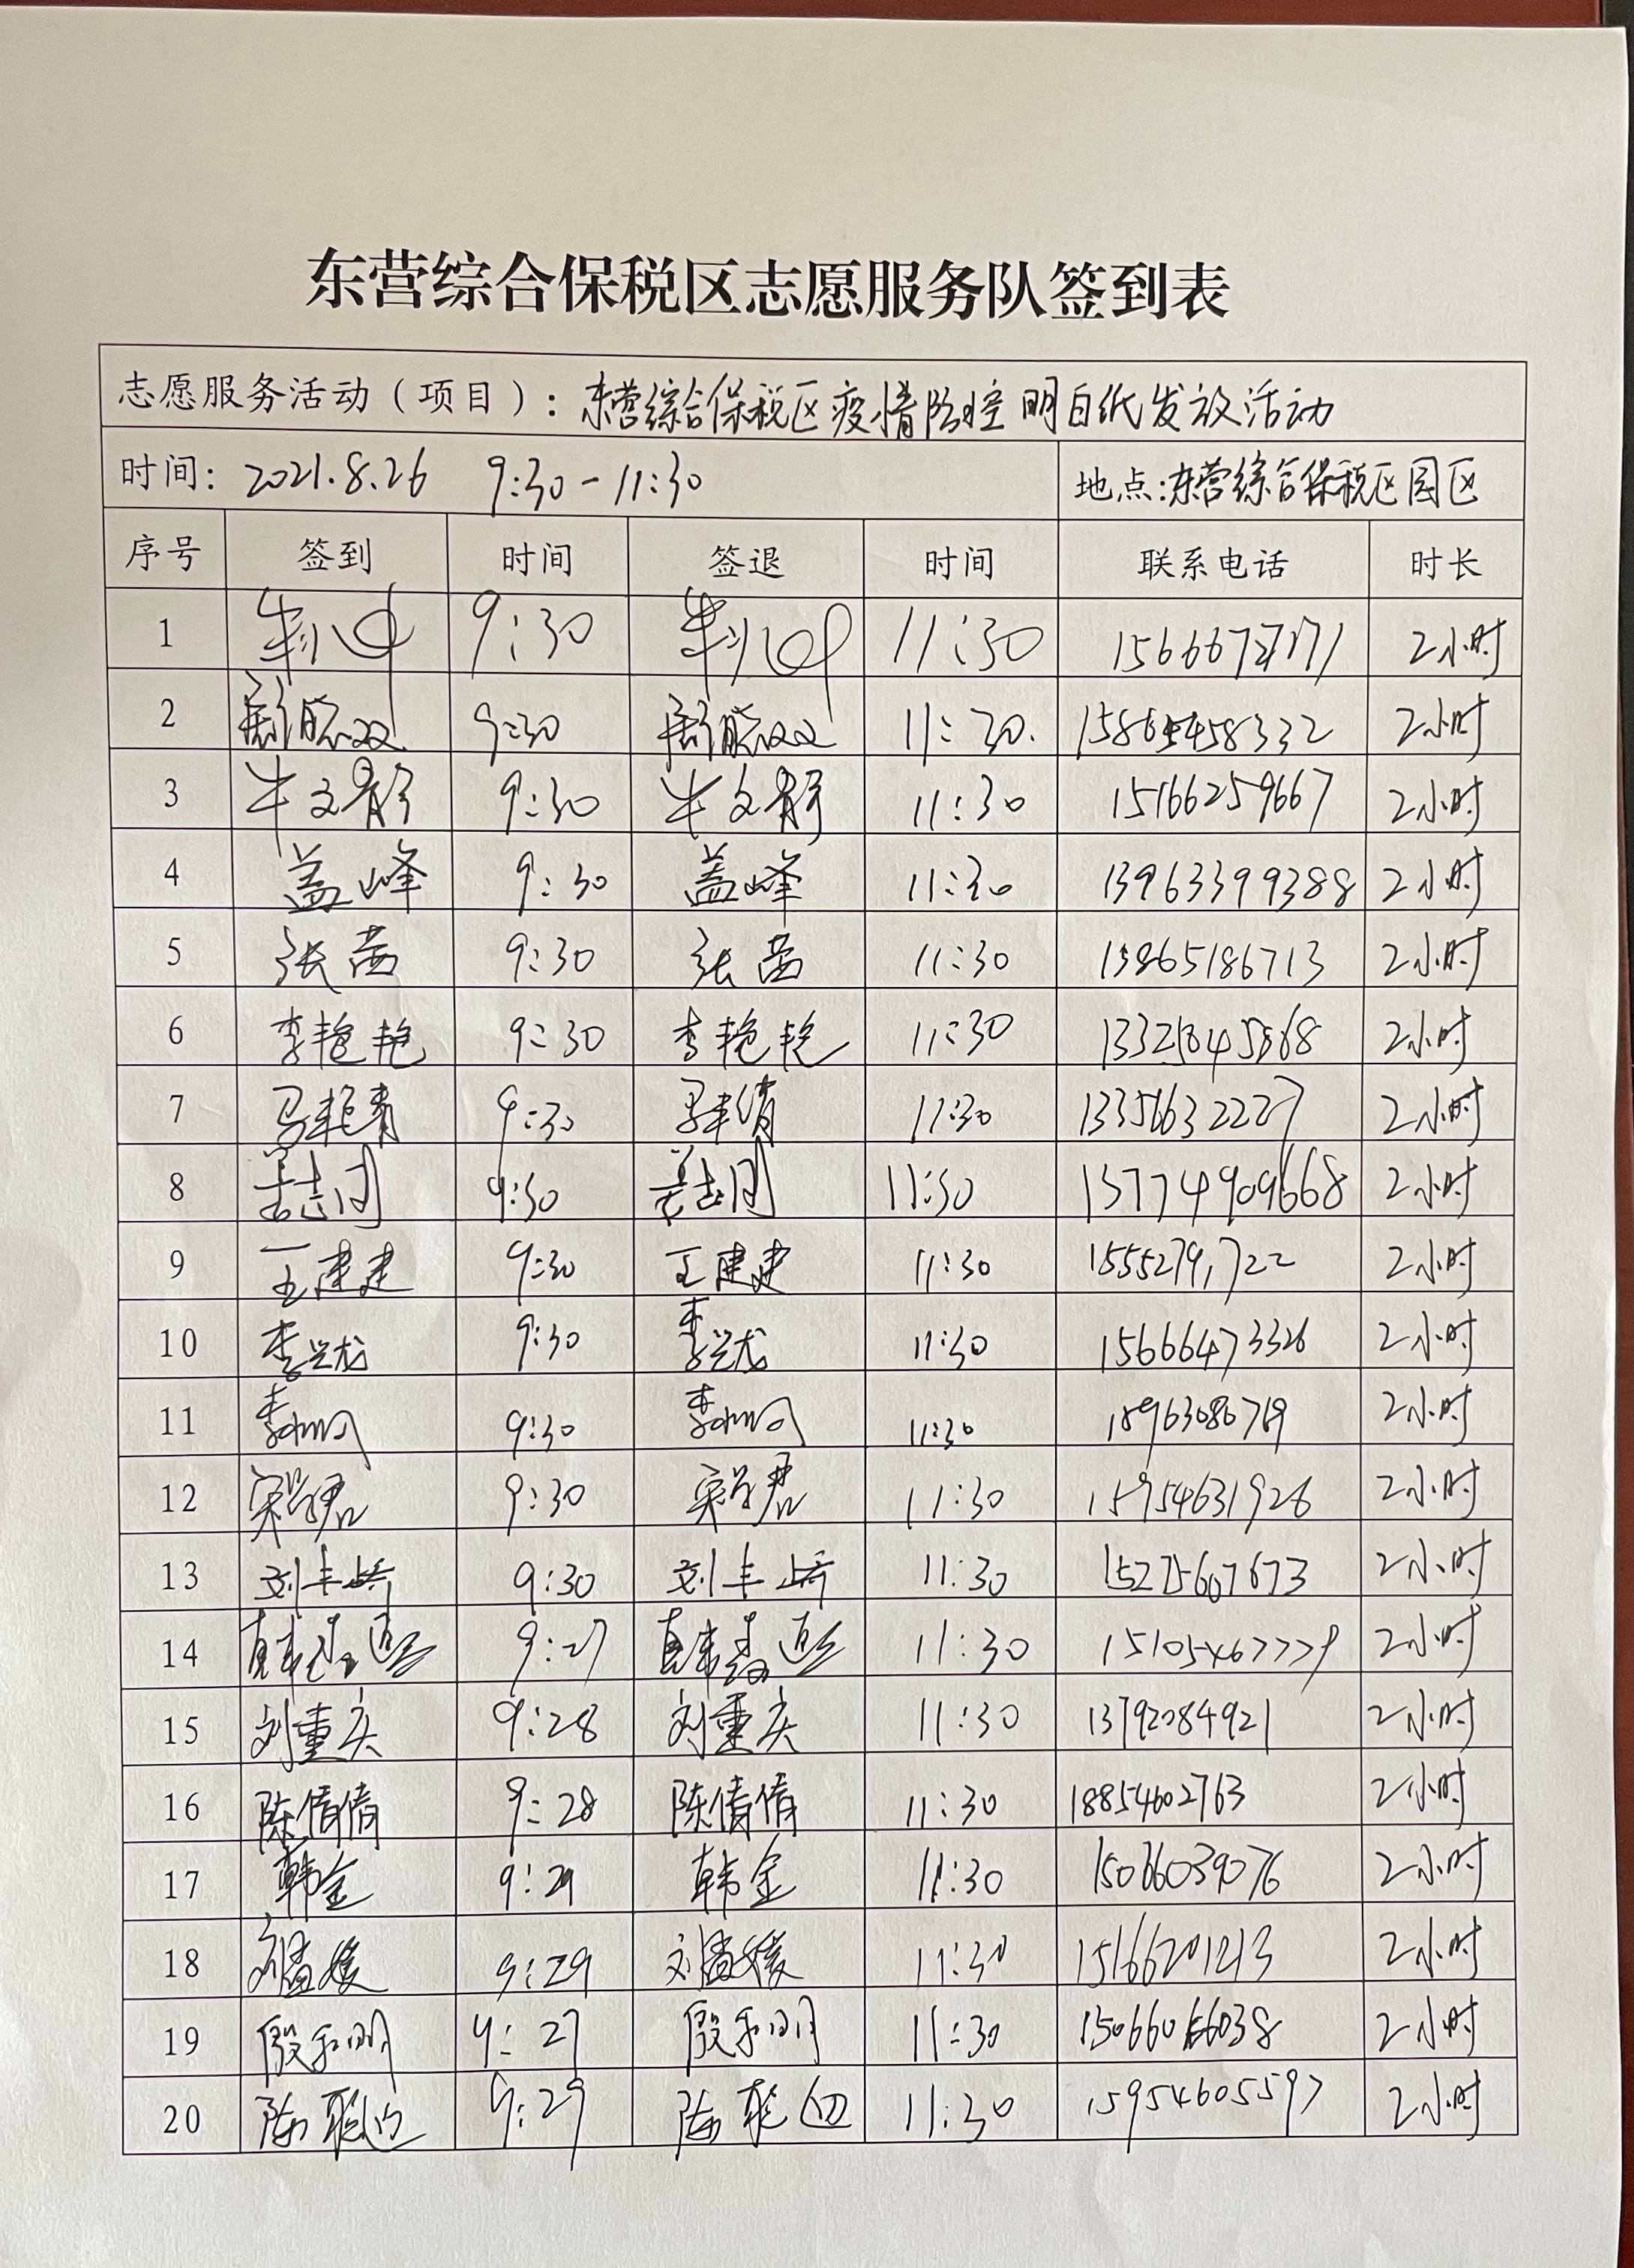 东营综合保税区志愿服务队签到表
志愿服务活动（项目）：东营综合保税区疫情防控明白纸发放活动
时间：2021.8.26 9:30-11:30 地点：东营综合保税区园区
序号 签到 时间 签退 时间 联系电话 时长
1 9:30 11:30 2小时
2 9:30 11:30. 15865458332 2小时
3 牛文静 9:30 牛文静 11:30 15166259667 2小时
4 盖峰 9:30 盖峰 11:30 13963399388 2小时
5 张茜 9:30 张茜 11:30 15865186713 2小时
6 李艳艳 9:30 李艳艳 11:30 2小时
7 9:30 11:30 13356632227 2小时
8 9:30 11:30 2小时
9 王建建 9:30 王建建 11:30 15552791722 2小时
10 李兴龙 9:30 李兴龙 11:30 15666473326 2小时
11 9:30 11:30 2小时
12 宋学君 9:30 宋学君 11:30 15954631926 2小时
13 9:30 11:30 15275607673 2小时
14 9:27 11:30 2小时
15 刘重庆 9:28 刘重庆 11:30 13792084921 2小时
16 陈倩倩 9:28 陈倩倩 11:30 18854602763 2小时
17 韩金 9:29 韩金 11:30 15066039076 2小时
18 刘孟媛 9:29 刘孟媛 11:30 15166201213 2小时
19 9:27 11:30 2小时
20 9:29 11:30 15954605597 2小时